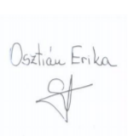 Osztián Erika